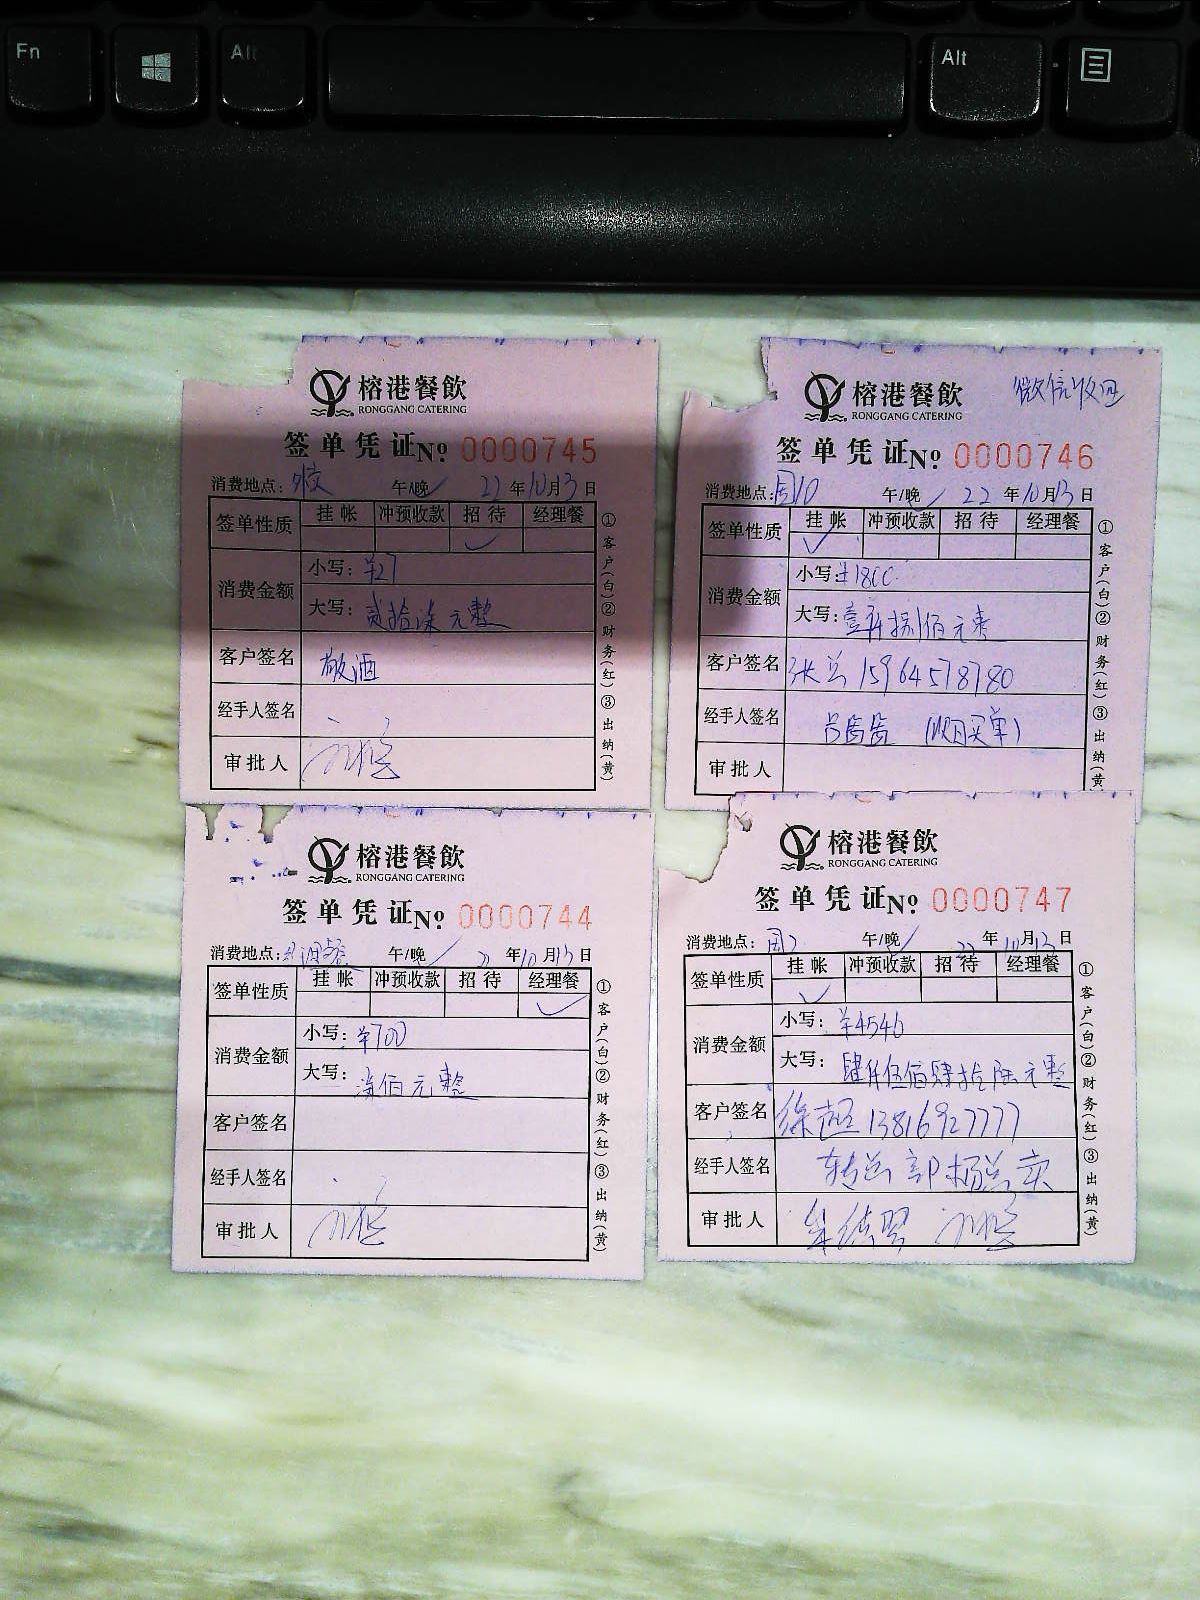 Fn
Alt
Alt
榕港餐飲
RONGGANG CATERING
签单凭证No 0000745
消费地点: 午/晚 22年10月13日
签单性质 挂帐 冲预收款 招待 经理餐
消费金额
小写:¥27
大写:贰拾柒元整
客户签名 敬酒
经手人签名
审批人
①客户(白)②财务(红)③出纳(黄)
微信收回
榕港餐飲
RONGGANG CATERING
签单凭证No 0000746
消费地点:国10 午/晚 22年10月13日
签单性质 挂帐 冲预收款 招待 经理餐
消费金额
小写:¥1800
大写:壹仟捌佰元整
客户签名 张总 15964578780
经手人签名 (次日买单)
审批人
①客户(白)②财务(红)③出纳(黄)
榕港餐飲
RONGGANG CATERING
签单凭证No 0000744
消费地点: 午/晚 年10月13日
签单性质 挂帐 冲预收款 招待 经理餐
消费金额
小写:¥700
大写:柒佰元整
客户签名
经手人签名
审批人
①客户(白)②财务(红)③出纳(黄)
榕港餐飲
RONGGANG CATERING
签单凭证No 0000747
消费地点:国2 午/晚 22年10月13日
签单性质 挂帐 冲预收款 招待 经理餐
消费金额
小写:¥4546
大写:肆仟伍佰肆拾陆元整
客户签名 徐超 13816927777
经手人签名 转总部杨总
审批人
①客户(白)②财务(红)③出纳(黄)